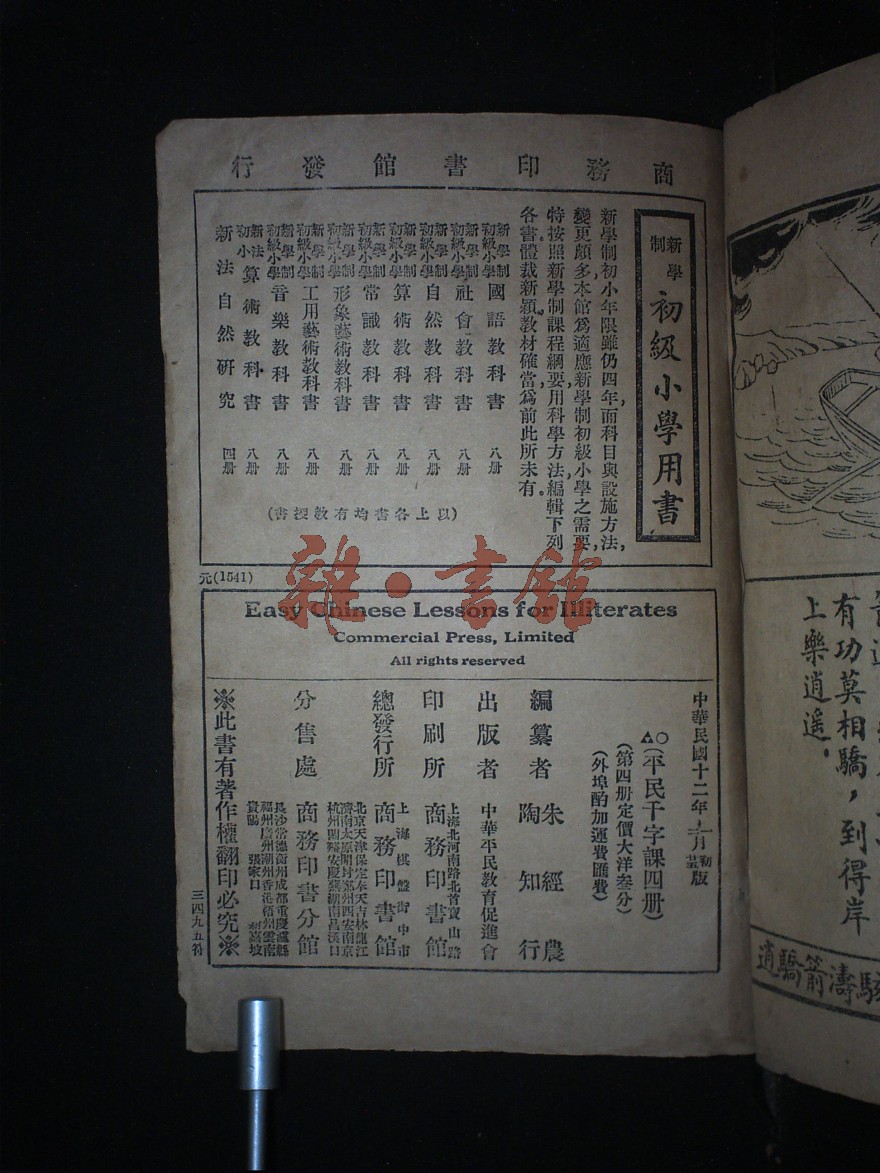 商務印書館發行
新學制
初級小學用書
新學制初小年限雖仍四年,而科目與設施方法,
變更頗多本館爲適應新學制初級小學之需要,
特按照新學制課程綱要,用科學方法,編輯下列
各書,體裁新穎,教材確當,爲前此所未有。
新學制初級小學 國語教科書 八册
新學制初級小學 社會教科書 八册
新學制初級小學 自然教科書 八册
新學制初級小學 算術教科書 八册
新學制初級小學 常識教科書 八册
新學制初級小學 形象藝術教科書 八册
新學制初級小學 工用藝術教科書 八册
新學制初級小學 音樂教科書 八册
新法初小 算術教科書 八册
新法自然研究 四册
(以上各書均有教授書)
元(1541)
雜·書館
Easy Chinese Lessons for Illiterates
Commercial Press, Limited
All rights reserved
中華民國十二年 月初版
△○(平民千字課四册)
(第四册定價大洋叁分)
(外埠酌加運費匯費)
編纂者 朱經農 陶知行
出版者 中華平民教育促進會
印刷所 上海北河南路北首寶山路 商務印書館
總發行所 上海棋盤街中市 商務印書館
分售處 商務印書分館
北京天津保定奉天吉林龍江
濟南太原開封鄭州西安南京
杭州蘭谿安慶蕪湖南昌漢口
長沙常德衡州成都重慶瀘縣
福州廣州潮州香港梧州雲南
貴陽 張家口 新嘉坡
※此書有著作權翻印必究※
三四九五符
有功莫相驕,到得岸
上樂逍遙。
濤箭驕逍